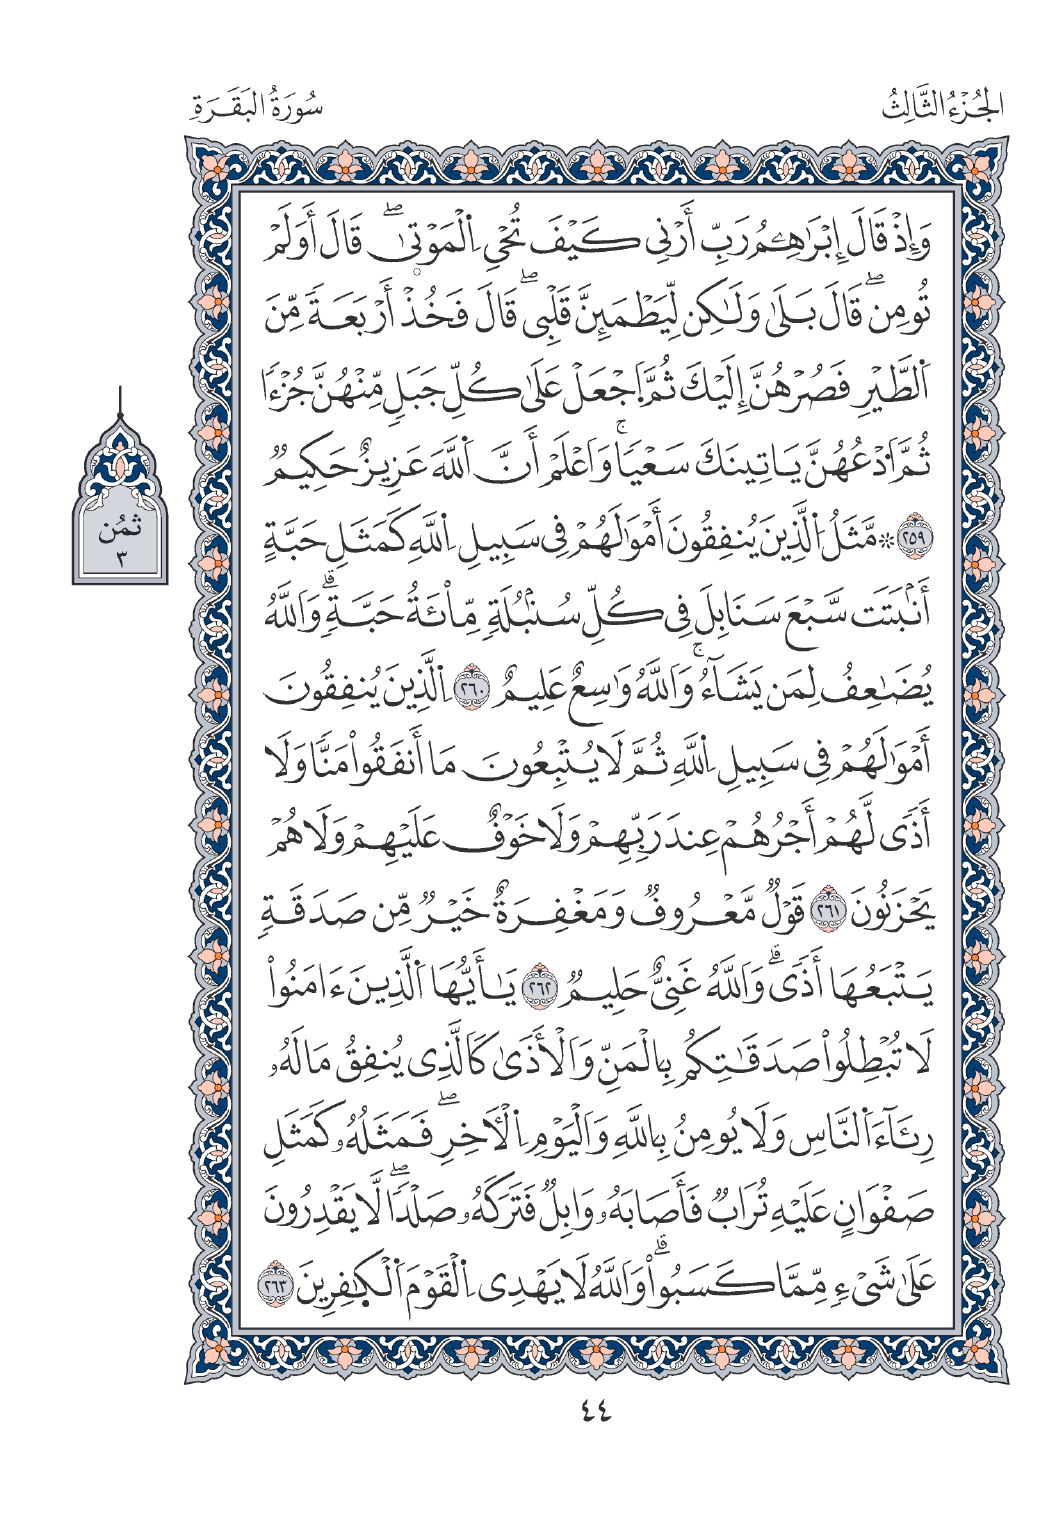 الجُزْءُ الثَّالِثُ
سُورَةُ البَقَرَةِ
وَإِذْ قَالَ إِبْرَٰهِـۧمُ رَبِّ أَرْنِى كَيْفَ تُحْىِ اِ۬لْمَوْتىٰۖ قَالَ أَوَلَمْ
تُومِنۖ قَالَ بَلَىٰ وَلَٰكِن لِّيَطْمَئِنَّ قَلْبِىۖ قَالَ فَخُذْ أَرْبَعَةً مِّنَ
اَ۬لطَّيْرِ فَصُرْهُنَّ إِلَيْكَ ثُمَّ اَ۪جْعَلْ عَلَىٰ كُلِّ جَبَلٍ مِّنْهُنَّ جُزْءًا
ثُمَّ اَ۟دْعُهُنَّ يَاتِينَكَ سَعْيًاۚ وَاعْلَمْ أَنَّ اَ۬للَّهَ عَزِيزٌ حَكِيمٌ
٢٥٩ ۞ مَّثَلُ اُ۬لَّذِينَ يُنفِقُونَ أَمْوَٰلَهُمْ فِى سَبِيلِ اِ۬للَّهِ كَمَثَلِ حَبَّةٍ
أَنۢبَتَت سَّبْعَ سَنَابِلَ فِى كُلِّ سُنۢبُلَةٍ مِّاْئَةُ حَبَّةٍۗ وَاللَّهُ
يُضَٰعِفُ لِمَن يَشَآءُۚ وَاللَّهُ وَٰسِعٌ عَلِيمٌ ٢٦٠ اِ۬لَّذِينَ يُنفِقُونَ
أَمْوَٰلَهُمْ فِى سَبِيلِ اِ۬للَّهِ ثُمَّ لَا يُتْبِعُونَ مَا أَنفَقُواْ مَنًّا وَلَا
أَذًى لَّهُمْ أَجْرُهُمْ عِندَ رَبِّهِمْ وَلَا خَوْفٌ عَلَيْهِمْ وَلَا هُمْ
يَحْزَنُونَ ٢٦١ قَوْلٌ مَّعْرُوفٌ وَمَغْفِرَةٌ خَيْرٌ مِّن صَدَقَةٍ
يَتْبَعُهَا أَذًىۗ وَاللَّهُ غَنِىٌّ حَلِيمٌ ٢٦٢ يَٰأَيُّهَا اَ۬لَّذِينَ ءَامَنُواْ
لَا تُبْطِلُواْ صَدَقَٰتِكُم بِالْمَنِّ وَالْأَذَىٰ كَالَّذِى يُنفِقُ مَالَهُۥ
رِئَآءَ اَ۬لنَّاسِ وَلَا يُومِنُ بِاللَّهِ وَالْيَوْمِ اِ۬لْأٓخِرِۖ فَمَثَلُهُۥ كَمَثَلِ
صَفْوَانٍ عَلَيْهِ تُرَابٌ فَأَصَابَهُۥ وَابِلٌ فَتَرَكَهُۥ صَلْدًاۖ لَّا يَقْدِرُونَ
عَلَىٰ شَىْءٍ مِّمَّا كَسَبُواْۗ وَاللَّهُ لَا يَهْدِى اِ۬لْقَوْمَ اَ۬لْكَٰفِرِينَ ٢٦٣
ثمُن
٣
٤٤